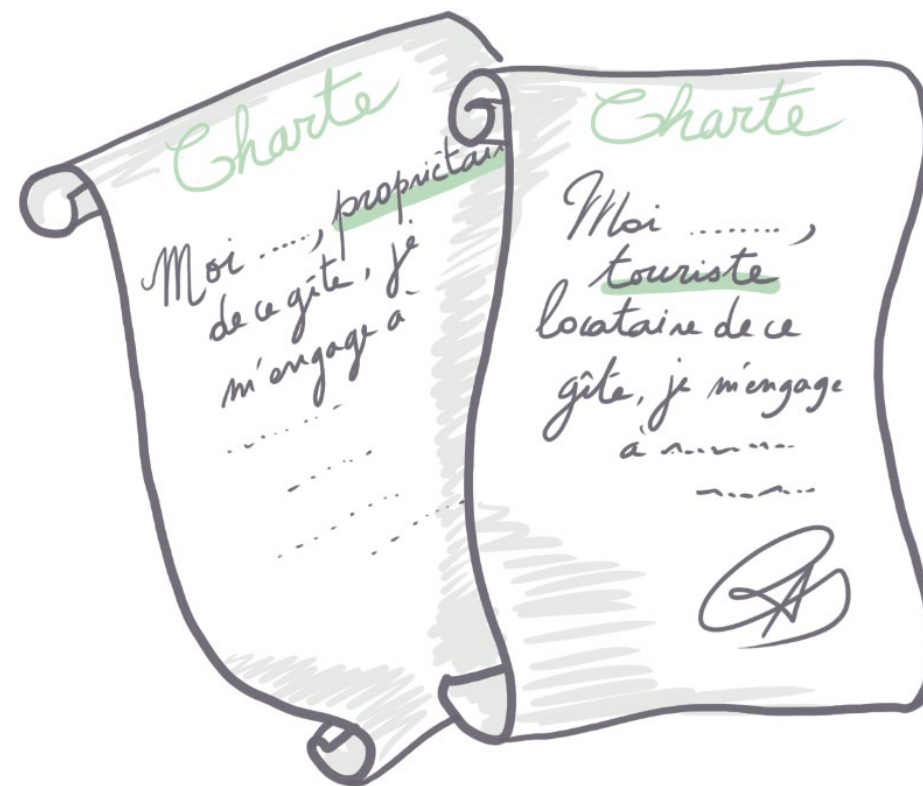 Charte
Moi ....., propriétair
de ce gîte, je
m'engage à
Charte
Moi ........,
touriste
locataire de ce
gîte, je m'engage
à